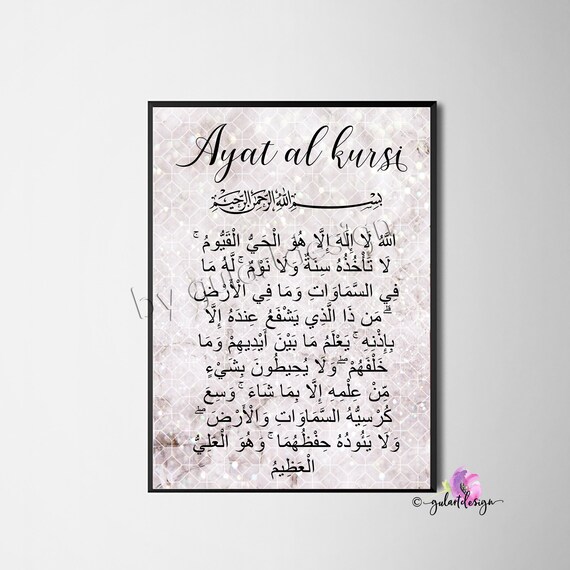 Ayat al kursi
بِسْمِ اللهِ الرَّحْمٰنِ الرَّحِيْمِ
اللَّهُ لَا إِلَٰهَ إِلَّا هُوَ الْحَيُّ الْقَيُّومُ ۚ
لَا تَأْخُذُهُ سِنَةٌ وَلَا نَوْمٌ ۚ لَّهُ مَا
فِي السَّمَاوَاتِ وَمَا فِي الْأَرْضِ
ۗ مَن ذَا الَّذِي يَشْفَعُ عِندَهُ إِلَّا
بِإِذْنِهِ ۚ يَعْلَمُ مَا بَيْنَ أَيْدِيهِمْ وَمَا
خَلْفَهُمْ ۖ وَلَا يُحِيطُونَ بِشَيْءٍ
مِّنْ عِلْمِهِ إِلَّا بِمَا شَاءَ ۚ وَسِعَ
كُرْسِيُّهُ السَّمَاوَاتِ وَالْأَرْضَ ۖ
وَلَا يَئُودُهُ حِفْظُهُمَا ۚ وَهُوَ الْعَلِيُّ
الْعَظِيمُ
by gulartdesign
© gulartdesign